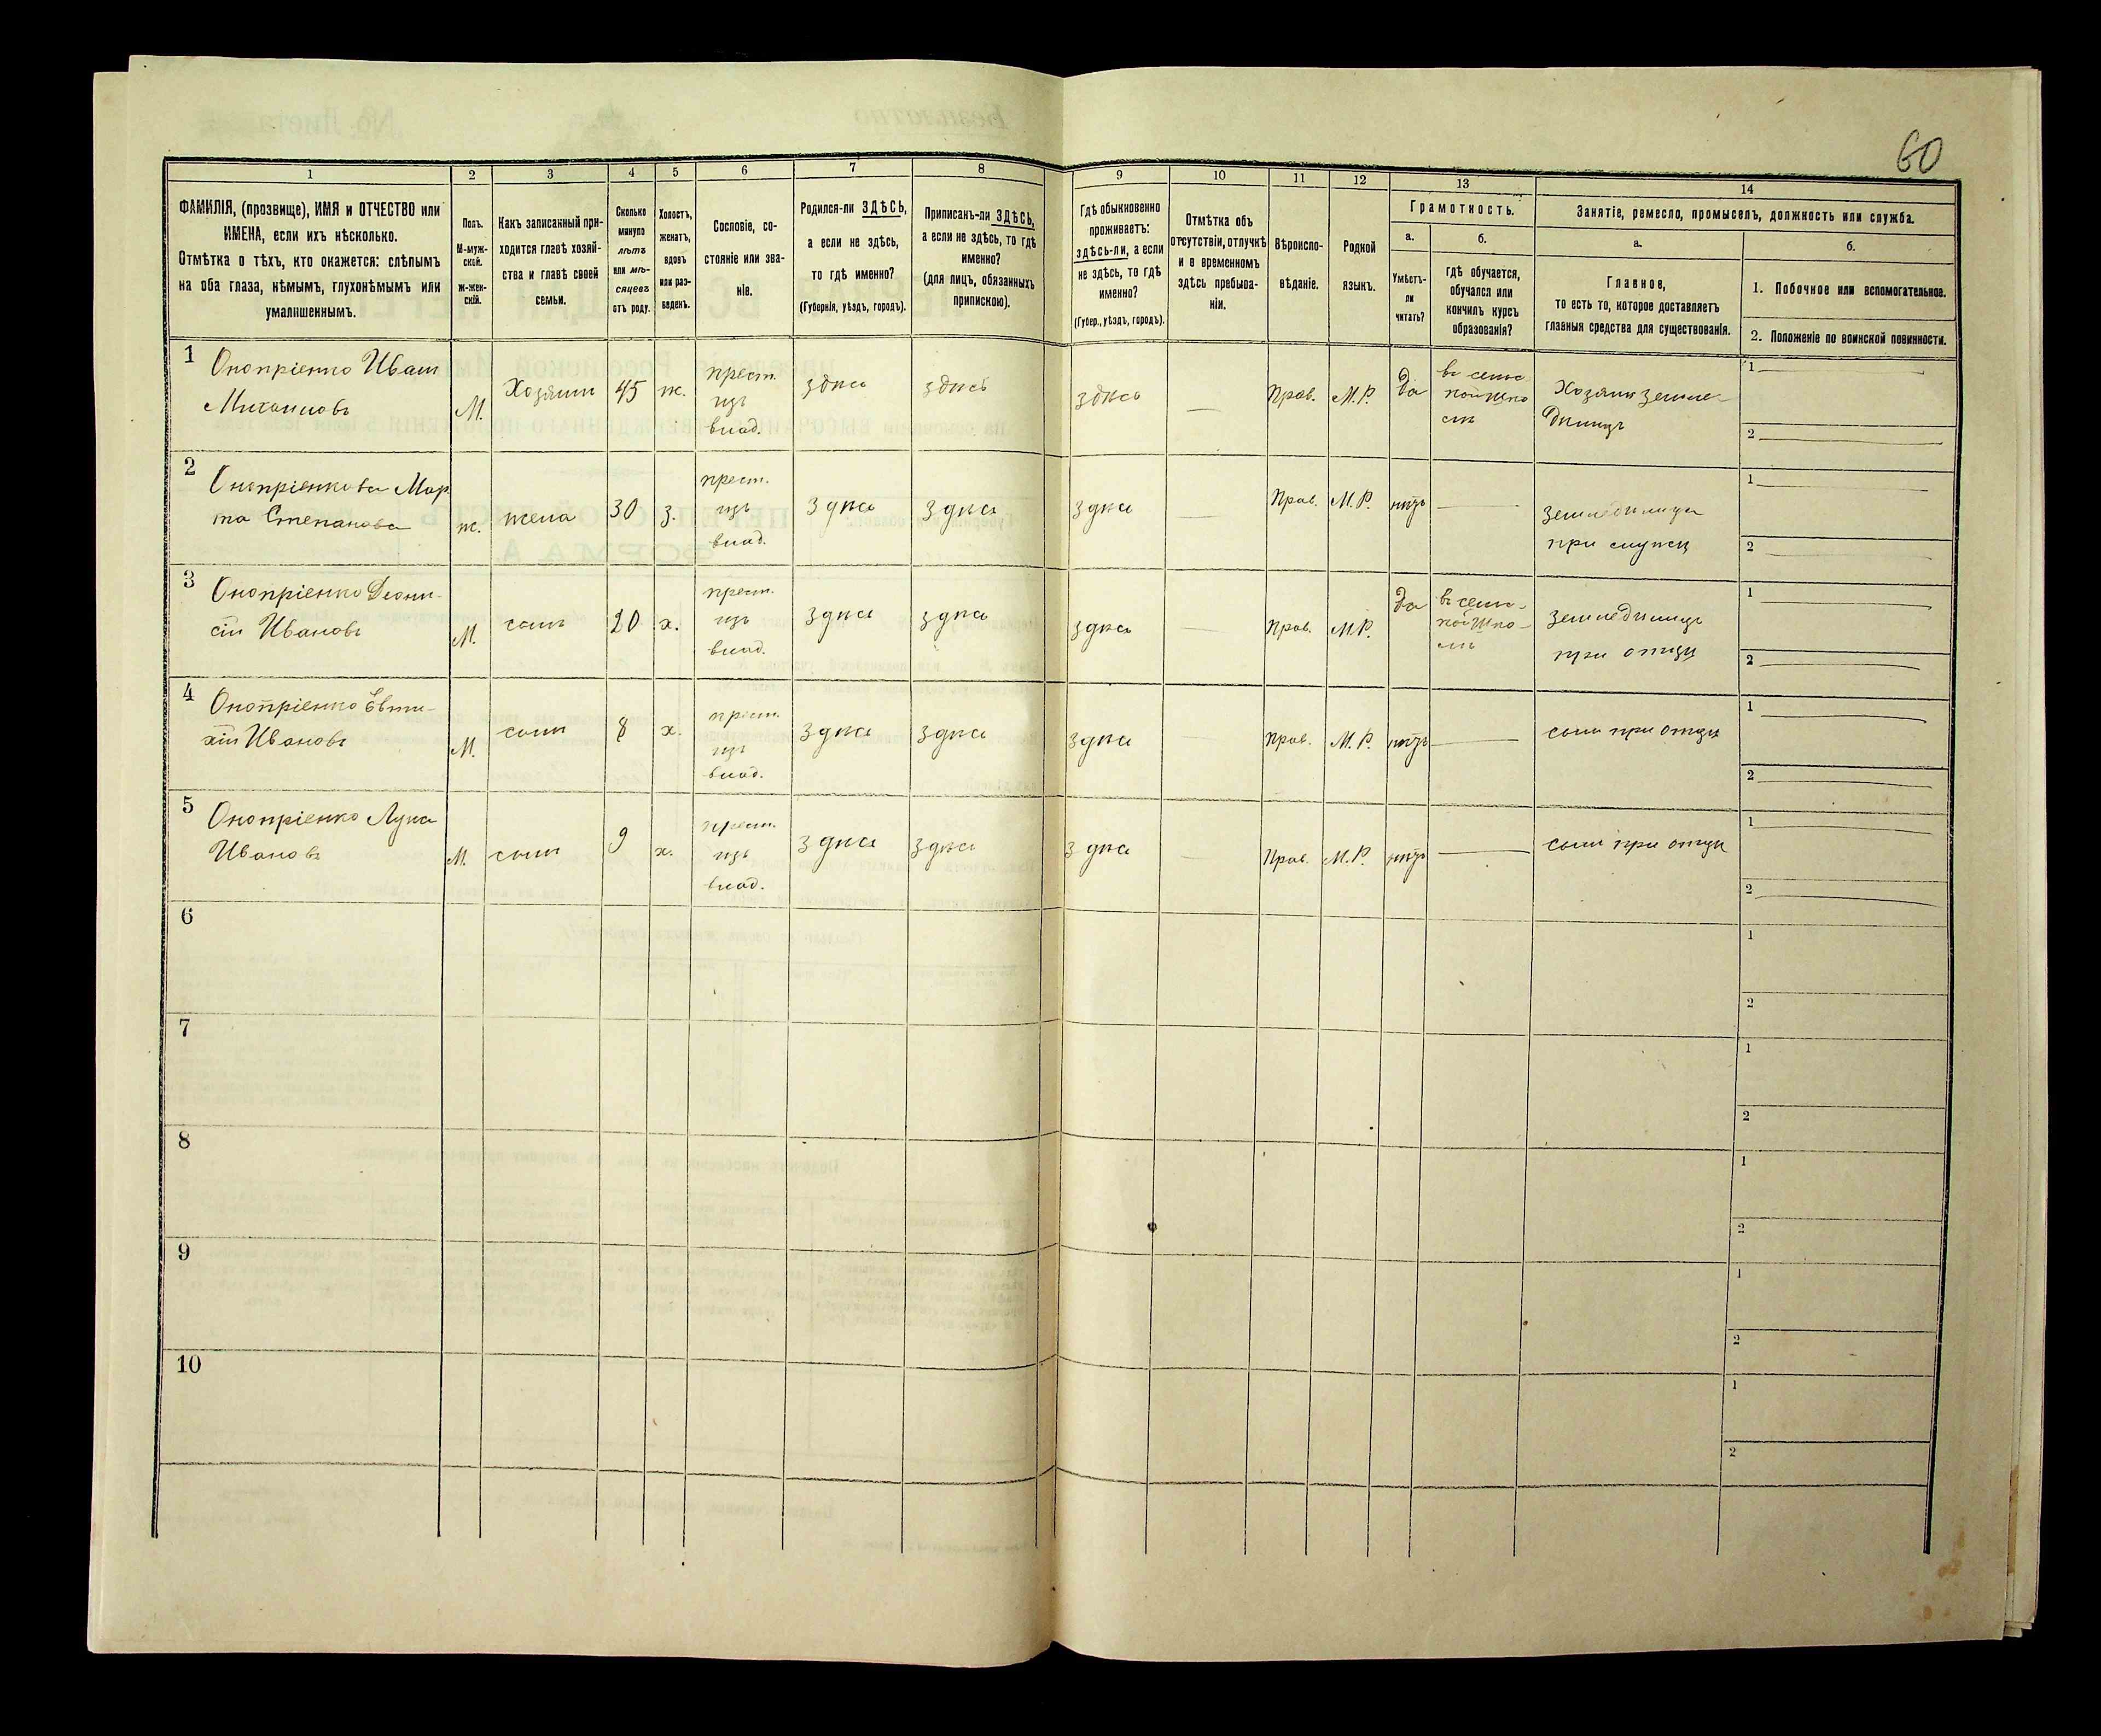 60
1 2 3 4 5 6 7 8 9 10 11 12 13 14
ФАМИЛІЯ, (прозвище), ИМЯ и ОТЧЕСТВО или
ИМЕНА, если ихъ нѣсколько.
Отмѣтка о тѣхъ, кто окажется: слѣпымъ
на оба глаза, нѣмымъ, глухонѣмымъ или
умалишеннымъ.
Полъ.
М-муж-
ской.
ж-жен-
скій.
Какъ записанный при-
ходится главѣ хозяй-
ства и главѣ своей
семьи.
Сколько
минуло
лѣтъ
или мѣ-
сяцевъ
отъ роду.
Холостъ,
женатъ,
вдовъ
или раз-
веденъ.
Сословіе, со-
стояніе или зва-
ніе.
Родился-ли ЗДѢСЬ,
а если не здѣсь,
то гдѣ именно?
(Губернія, уѣздъ, городъ).
Приписанъ-ли ЗДѢСЬ,
а если не здѣсь, то гдѣ
именно?
(для лицъ, обязанныхъ
припискою).
Гдѣ обыкновенно
проживаетъ:
здѣсь-ли, а если
не здѣсь, то гдѣ
именно?
(Губер., уѣздъ, городъ).
Отмѣтка объ
отсутствіи, отлучкѣ
и о временномъ
здѣсь пребыва-
ніи.
Вѣроиспо-
вѣданіе.
Родной
языкъ.
Грамотность.
а.
Умѣетъ-
ли
читать?
б.
гдѣ обучается,
обучался или
кончилъ курсъ
образованія?
Занятіе, ремесло, промыселъ, должность или служба.
а.
Главное,
то есть то, которое доставляетъ
главныя средства для существованія.
б.
1. Побочное или вспомогательное.
2. Положеніе по воинской повинности.
1
Оноприенко Иванъ
Михаиловъ
М.
Хозяинъ
45
ж.
крест.
изъ
влад.
здѣсь
здѣсь
здѣсь
—
Прав.
М.Р.
да
въ сельс
кой шко
лѣ
Хозяинъ земле-
дѣлецъ
1
2
2
Оноприенкова Мар
та Степанова
ж.
жена
30
з.
крест.
изъ
влад.
здѣсь
здѣсь
здѣсь
—
Прав.
М.Р.
нѣтъ
—
земледѣлица
при мужѣ
1
2
3
Оноприенко Диони-
сій Ивановъ
М.
сынъ
20
х.
крест.
изъ
влад.
здѣсь
здѣсь
здѣсь
—
Прав.
М.Р.
да
въ сель-
кой шко-
лѣ
земледѣлецъ
при отцѣ
1
2
4
Оноприенко Евти-
хій Ивановъ
М.
сынъ
8
х.
крест.
изъ
влад.
здѣсь
здѣсь
здѣсь
—
Прав.
М.Р.
нѣтъ
—
сынъ при отцѣ
1
2
5
Оноприенко Лука
Ивановъ
М.
сынъ
9
х.
крест.
изъ
влад.
здѣсь
здѣсь
здѣсь
—
Прав.
М.Р.
нѣтъ
—
сынъ при отцѣ
1
2
6
1
2
7
1
2
8
1
2
9
1
2
10
1
2